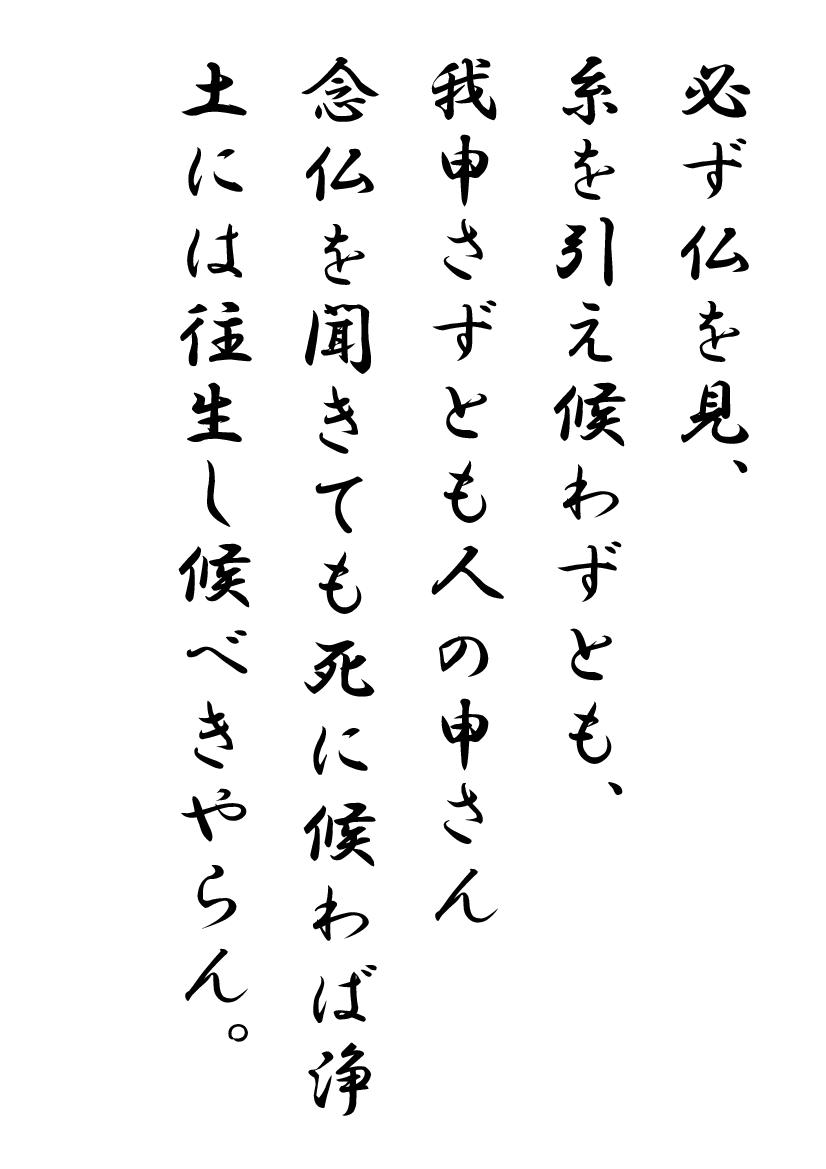 必ず仏を見、
糸を引え候わずとも、
我申さずとも人の申さん
念仏を聞きても死に候わば浄
土には往生し候べきやらん。